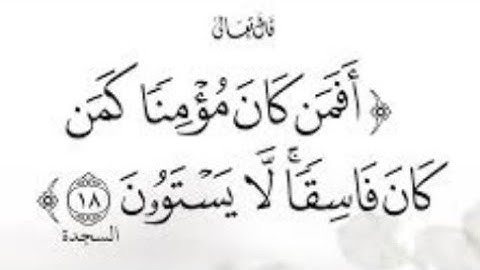 قال تعالى
﴿ أَفَمَن كَانَ مُؤْمِنًا كَمَن
كَانَ فَاسِقًا ۚ لَّا يَسْتَوُونَ ١٨ ﴾
السجدة